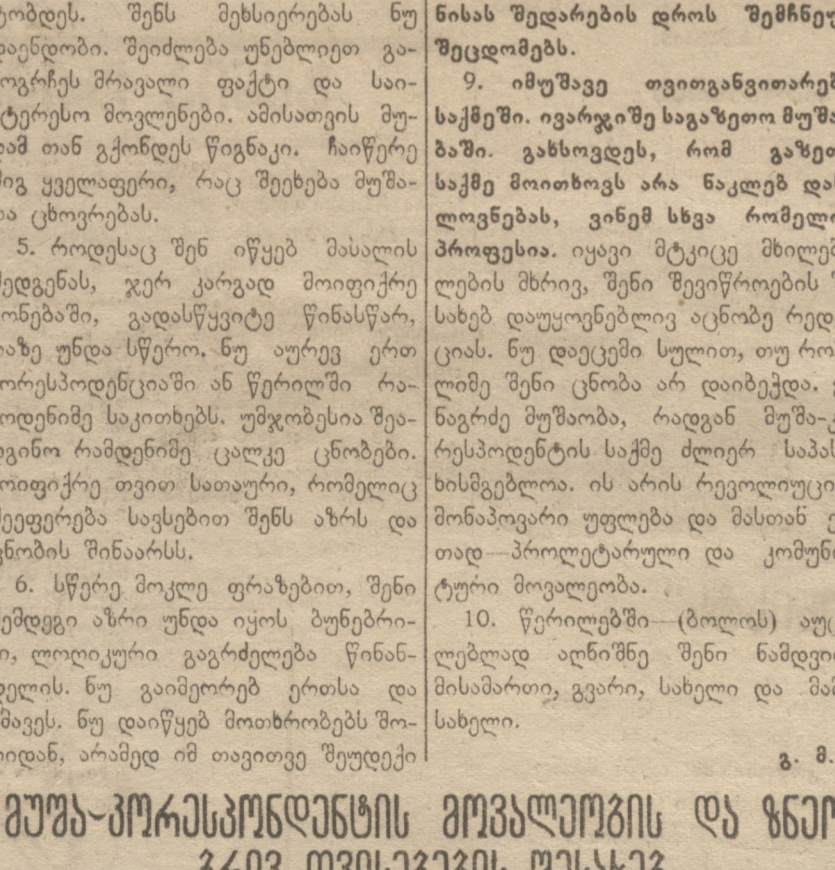 ტობდეს. შენს მეხსიერებას ნუ
დაენდობი. შეიძლება უნებლიეთ გა-
ოგრჩეს მრავალი ფაქტი და საი-
ტერესო მოვლენები. ამისათვის მუ-
დამ თან გქონდეს წიგნაკი. ჩაიწერე
შიგ ყველაფერი, რაც შეეხება მუშა-
თა ცხოვრებას.
5. როდესაც შენ იწყებ მასალის
შედგენას, ჯერ კარგად მოიფიქრე
ონებაში, გადასწყვიტე წინასწარ,
რაზე უნდა სწერო. ნუ აურევ ერთ
ორესპოდენციაში ან წერილში რა-
ოდენიმე საკითხებს. უმჯობესია შეა-
დგინო რამდენიმე ცალკე ცნობები.
ოიფიქრე თვით სათაური, რომელიც
შეეფერება სავსებით შენს აზრს და
ცნობის შინაარსს.
6. სწერე მოკლე ფრაზებით, შენი
შემდეგი აზრი უნდა იყოს ბუნებრი-
ი, ლოღიკური გაგრძელება წინან-
დელის. ნუ გაიმეორებ ერთსა და
მავეს. ნუ დაიწყებ მოთხრობებს შო-
რიდან, არამედ იმ თავითვე შეუდექი
ნისას შედარების დროს შემჩნეუ
შეცდომებს.
9. იმუშავე თვითგანვითარებ
საქმეში. ივარჯიშე საგაზეთო მუშა
ბაში. გახსოვდეს, რომ გაზეთ
საქმე მოითხოვს არა ნაკლებ და
ლოვნებას, ვინემ სხვა რომელი
პროფესია. იყავი მტკიცე მხილებ
ლების მხრივ, შენი შევიწროების
სახებ დაუყოვნებლივ აცნობე რედ
ციას. ნუ დაეცემი სულით, თუ რო
ლიმე შენი ცნობა არ დაიბეჭდა.
ნაგრძე მუშაობა, რადგან მუშა-კ
რესპოდენტის საქმე ძლიერ საპას
ხისმგებლოა. ის არის რევოლიუცი
მონაპოვარი უფლება და მასთან ე
თად—პროლეტარული და კომუნი
ტური მოვალეობა.
10. წერილებში—(ბოლოს) აუც
ლებლად აღნიშნე შენი ნამდვი
მისამართი, გვარი, სახელი და მამ
სახელი.
გ. მ.
მუშა-კორესპონდენტის მოვალეობის და ზნეო
ბრივ თვისებების შესახებ